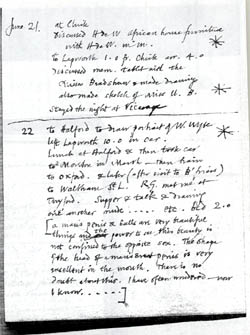 June 21. at Chick
Discussed H de W African house furniture
with H de W. m. m.
to Lapworth 1.0 p. Chick arr. 4.0
Discussed room. table and the
Bradshaw & made drawing
also made sketch of Miss U. B.
Stayed the night at
22 to Halford to draw portrait of W. Wyse
left Lapworth 10.0 in car.
Lunch at Halford & then took car
to in Marsh — then train
to Oxford. & later (after visit to B' friars)
to Waltham St L. R.G. met me at
Twyford. Supper & talk & drawing
one another made ..... etc. bed 2.0
[a man's penis & balls are very beautiful
things and the power to see this beauty is
not confined to the opposite sex. The shape
of the head of a man's erect penis is very
excellent in the mouth. There is no
doubt about this. I have often wondered — now
I know. . . . . .]